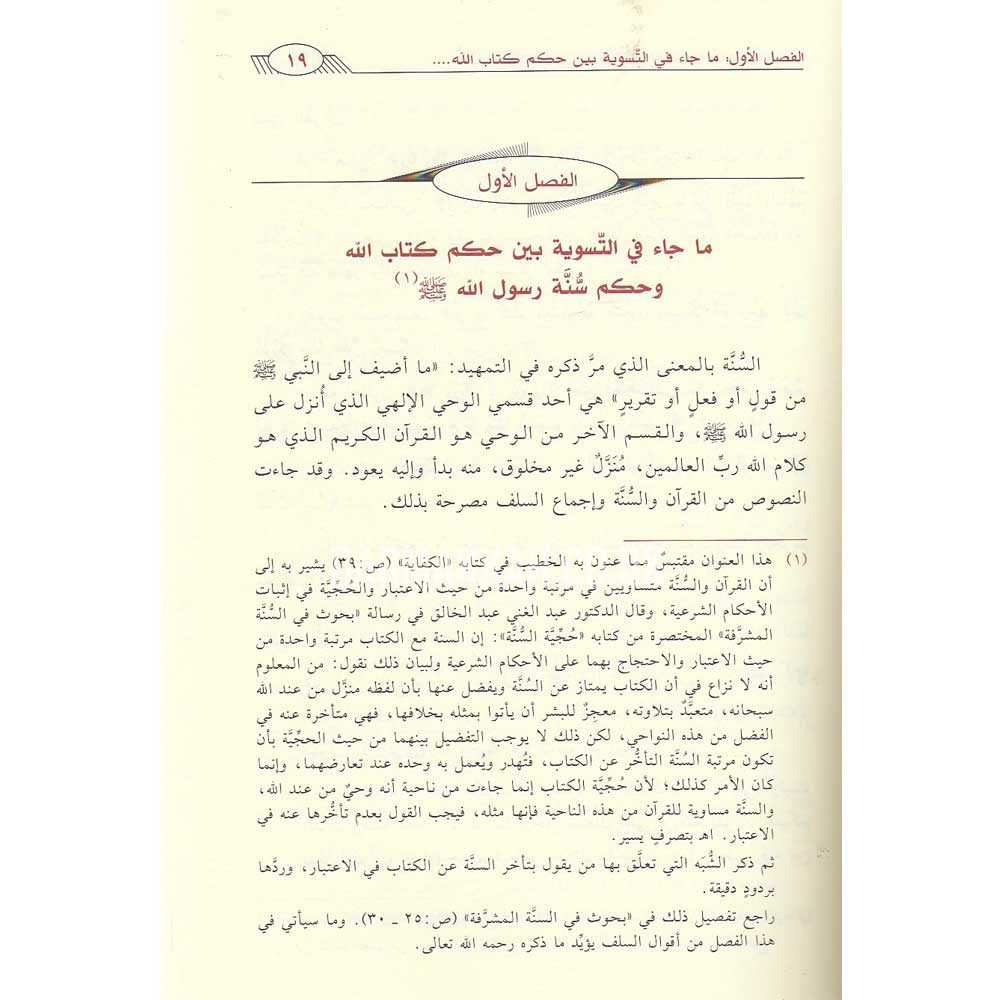 الفصل الأول: ما جاء في التّسوية بين حكم كتاب الله....
١٩
الفصل الأول
ما جاء في التّسوية بين حكم كتاب الله
وحكم سُنَّة رسول الله ﷺ(١)
السُنَّة بالمعنى الذي مرَّ ذكره في التمهيد: «ما أضيف إلى النَّبي ﷺ
من قولٍ أو فعلٍ أو تقريرٍ» هي أحد قسمي الوحي الإلهي الذي أُنزل على
رسول الله ﷺ، والقسم الآخر من الوحي هو القرآن الكريم الذي هو
كلام الله ربِّ العالمين، مُنَزَّلٌ غير مخلوق، منه بدأ وإليه يعود. وقد جاءت
النصوص من القرآن والسُّنَّة وإجماع السلف مصرحة بذلك.
(١) هذا العنوان مقتبسٌ مما عنون به الخطيب في كتابه «الكفاية» (ص:٣٩) يشير به إلى
أن القرآن والسُنَّة متساويين في مرتبة واحدة من حيث الاعتبار والحُجِّيَّة في إثبات
الأحكام الشرعية، وقال الدكتور عبد الغني عبد الخالق في رسالة «بحوث في السُنَّة
المشرَّفة» المختصرة من كتابه «حُجِّيَّة السُنَّة»: إن السنة مع الكتاب مرتبة واحدة من
حيث الاعتبار والاحتجاج بهما على الأحكام الشرعية ولبيان ذلك نقول: من المعلوم
أنه لا نزاع في أن الكتاب يمتاز عن السُنَّة ويفضل عنها بأن لفظه منزَّل من عند الله
سبحانه، متعبَّدٌ بتلاوته، معجِزٌ للبشر أن يأتوا بمثله بخلافها، فهي متأخرة عنه في
الفضل من هذه النواحي، لكن ذلك لا يوجب التفضيل بينهما من حيث الحجِّيَّة بأن
تكون مرتبة السُنَّة التأخُّر عن الكتاب، فتُهدر ويُعمل به وحده عند تعارضهما، وإنما
كان الأمر كذلك؛ لأن حُجِّيَّة الكتاب إنما جاءت من ناحية أنه وحيٌ من عند الله،
والسنَّة مساوية للقرآن من هذه الناحية فإنها مثله، فيجب القول بعدم تأخُّرها عنه في
الاعتبار. اهـ بتصرفٍ يسير.
ثم ذكر الشُّبَه التي تعلَّق بها من يقول بتأخر السنَّة عن الكتاب في الاعتبار، وردَّها
بردودٍ دقيقة.
راجع تفصيل ذلك في «بحوث في السنة المشرَّفة» (ص:٢٥ ـ ٣٠). وما سيأتي في
هذا الفصل من أقوال السلف يؤيِّد ما ذكره رحمه الله تعالى.